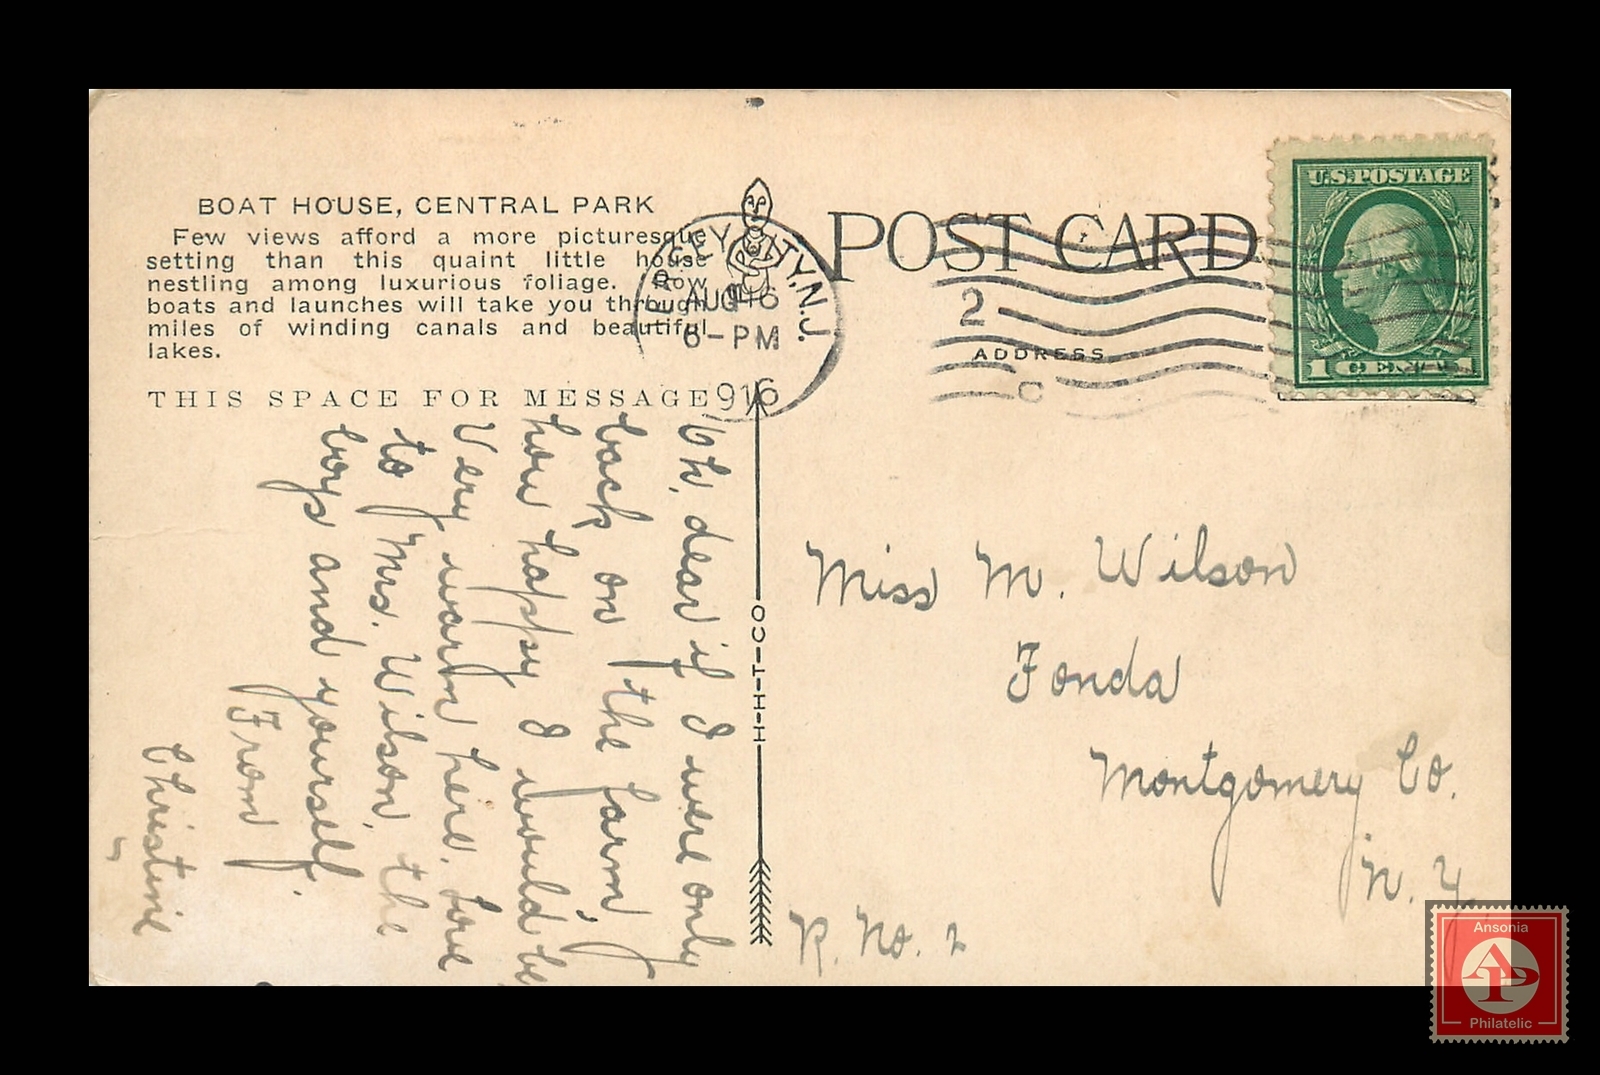 BOAT HOUSE, CENTRAL PARK
Few views afford a more picturesque
setting than this quaint little house
nestling among luxurious foliage. Row
boats and launches will take you through
miles of winding canals and beautiful
lakes.
THIS SPACE FOR MESSAGE
JERSEY CITY, N.J.
AUG 16
6-PM
1916
POST CARD
2
ADDRESS
C
U.S. POSTAGE
1 CENT 1
Oh, dear if I were only
back on the farm,
how happy I would be
Very warm here. Love
to Mrs. Wilson, the
boys and yourself.
From
Christine
H-H-T-CO
Miss M. Wilson
Fonda
Montgomery Co.
N. Y.
R. No. 2
Ansonia
AP
Philatelic